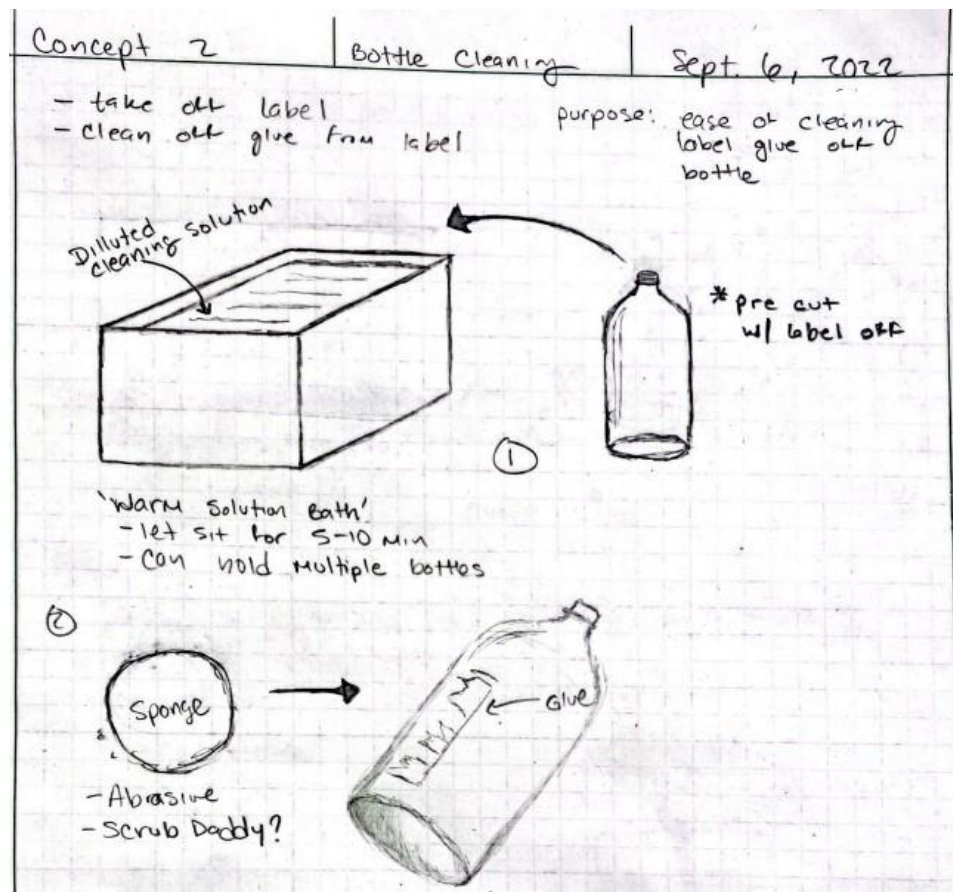 Concept 2
Bottle Cleaning
Sept. 6, 2022
- take off label
- clean off glue from label
purpose: ease of cleaning
label glue off
bottle
Dilluted
cleaning solution
* pre cut
w/ label off
1
'Warm Solution Bath'
- let sit for 5-10 min
- Can hold multiple bottles
2
Sponge
Glue
- Abrasive
- Scrub Daddy?